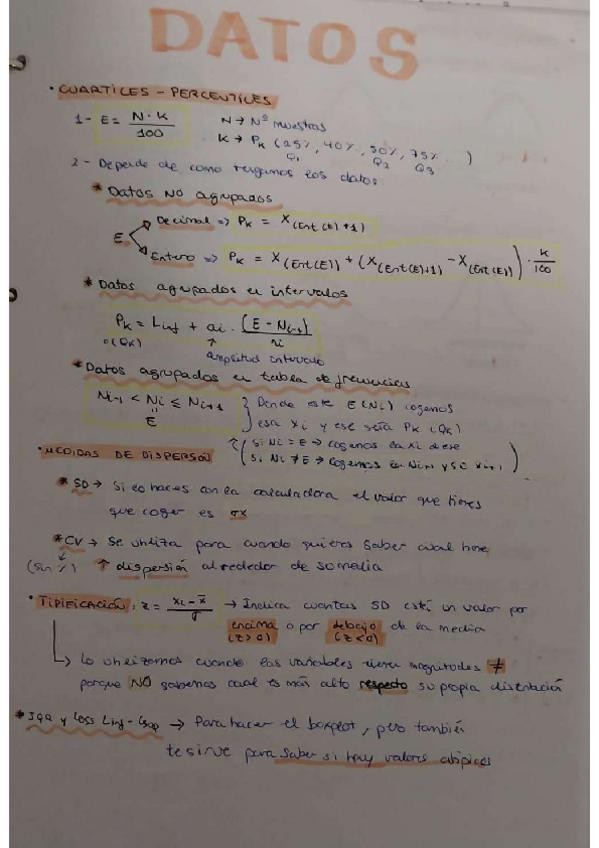 DATOS
· CUARTILES - PERCENTILES
1 - E = N · K / 100 N → Nº muestras
K → PK (25%, 40%, 50%, 75% )
Q1 Q2 Q3
2 - Depende de como tengamos los datos
* Datos NO agrupados
Decimal => PK = X(Ent(E)+1)
E
Entero => PK = X(Ent(E)) + (X(Ent(E)+1) - X(Ent(E))) · K/100
* Datos agrupados en intervalos
PK = Linf + ai · (E - Ni-1) / ni
o (QK) amplitud intervalo
* Datos agrupados en tabla de frecuencias
Ni-1 < Ni ≤ Ni+1 } Donde este E (Ni) cogemos
= E esa xi y ese será PK (QK)
( si Ni = E → cogemos la xi de ese
si Ni ≠ E → cogemos en Ni+1 y se xi+1 )
· MEDIDAS DE DISPERSÓN
* SD → Si lo haces con la calculadora el valor que tienes
que coger es σx
* CV → Se utiliza para cuando quieres saber cual tiene
(sin %) ↑ dispersión alrededor de su media
· TIPIFICACIÓN: z = xi - x̄ / σ → Indica cuantas SD está un valor por
encima o por debajo de la media
(z>0) (z<0)
Lo utilizamos cuando las variables tienen magnitudes ≠
porque NO sabemos cual es más alto respecto su propia distribución
* IQR y Loss Linf - Lsup → Para hacer el boxplot, pero también
te sirve para saber si hay valores atípicos